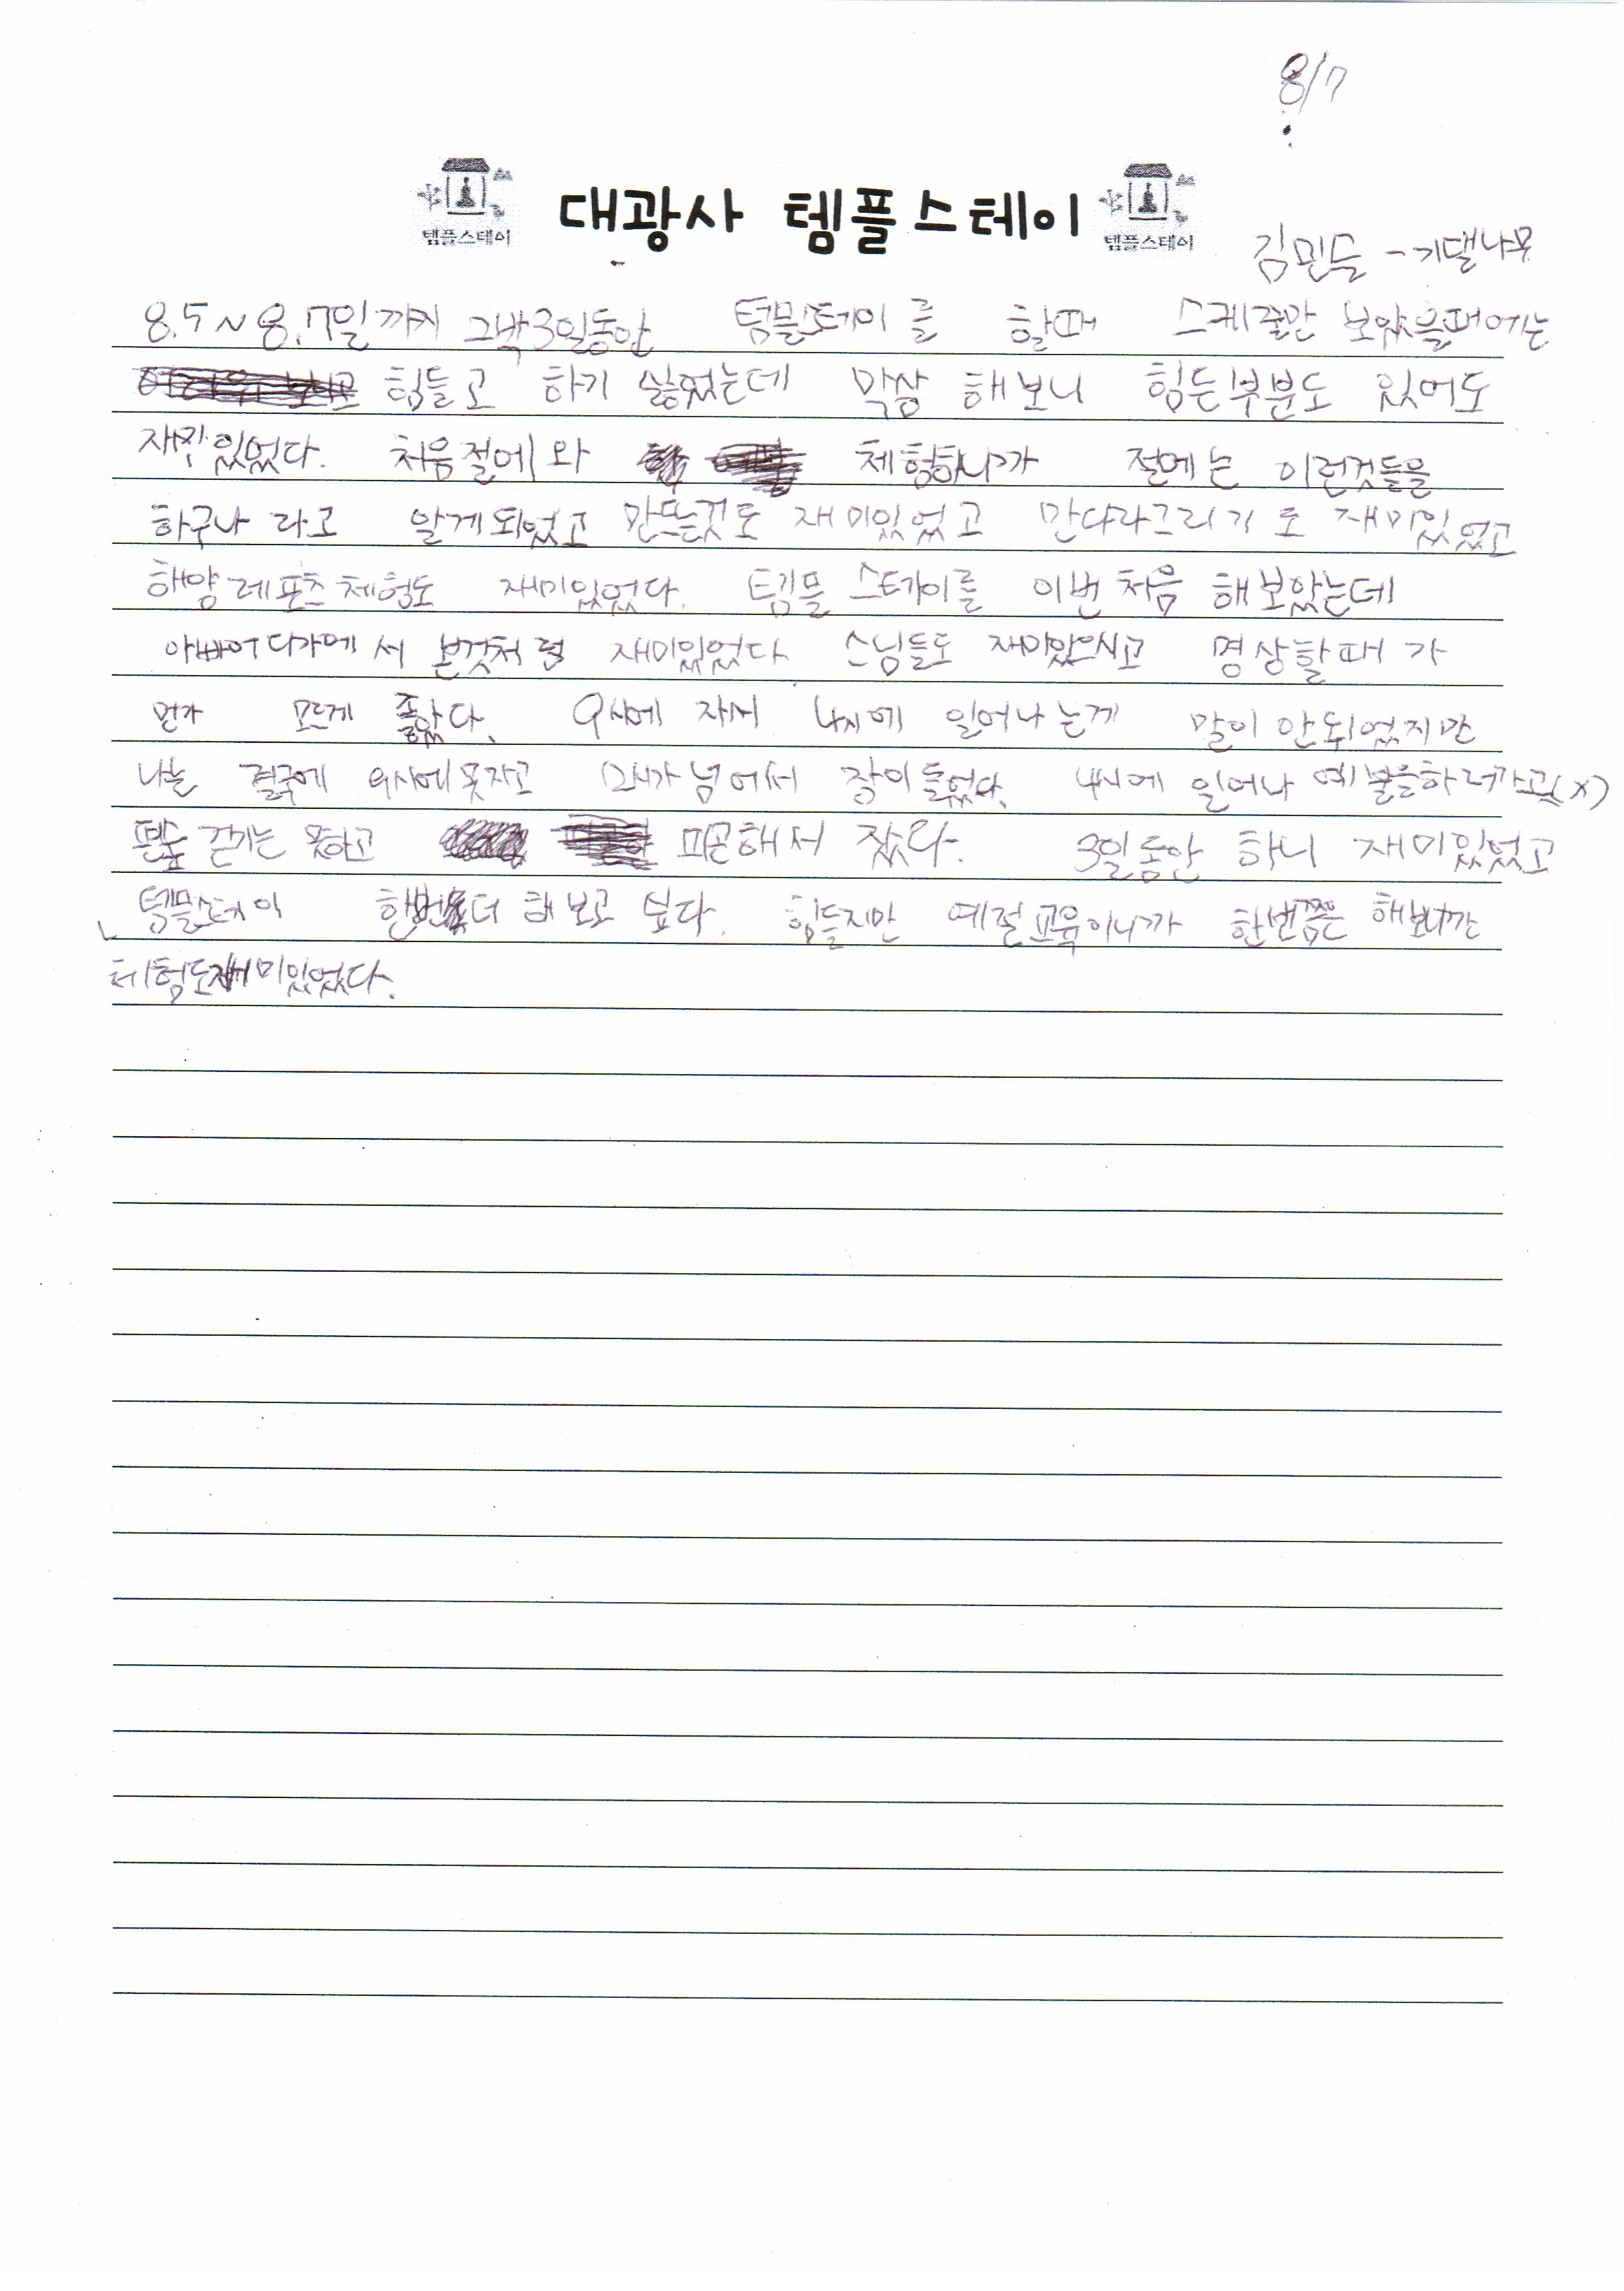 8/7
템플스테이 대광사 템플스테이 템플스테이
김민들 - 기댈나무
8.5~8.7일까지 2박3일동안 템블스테이를 할때 스케줄만 보았을때에는
힘들고 하기 싫었는데 막상 해보니 힘든부분도 있어도
재미있었다. 처음절에와 체험하니가 절에는 이런것들을
하구나 라고 알게되었고 만뜨는것도 재미있었고 만다라그리기도 재미있었고
해양레포츠체험도 재미있었다. 템블스테이를 이번처음 해보았는데
아빠어디가에서 본것처럼 재미있었다 스님들도 재미있으시고 명상할때가
먼가 모르게 좋았다. 9시에 자서 4시에 일어나는게 말이안되었지만
나는 결국에 9시에못자고 12시가넘어서 잠이들었다. 4시에 일어나 예불을하러가고(x)
편숲 걷기는 못하고 피곤해서 잤다. 3일동안 하니 재미있었고
템블스테이 한번더 해보고 싶다. 힘들지만 예절교육이니까 한번쯤은 해보니깐
체험도재미있었다.